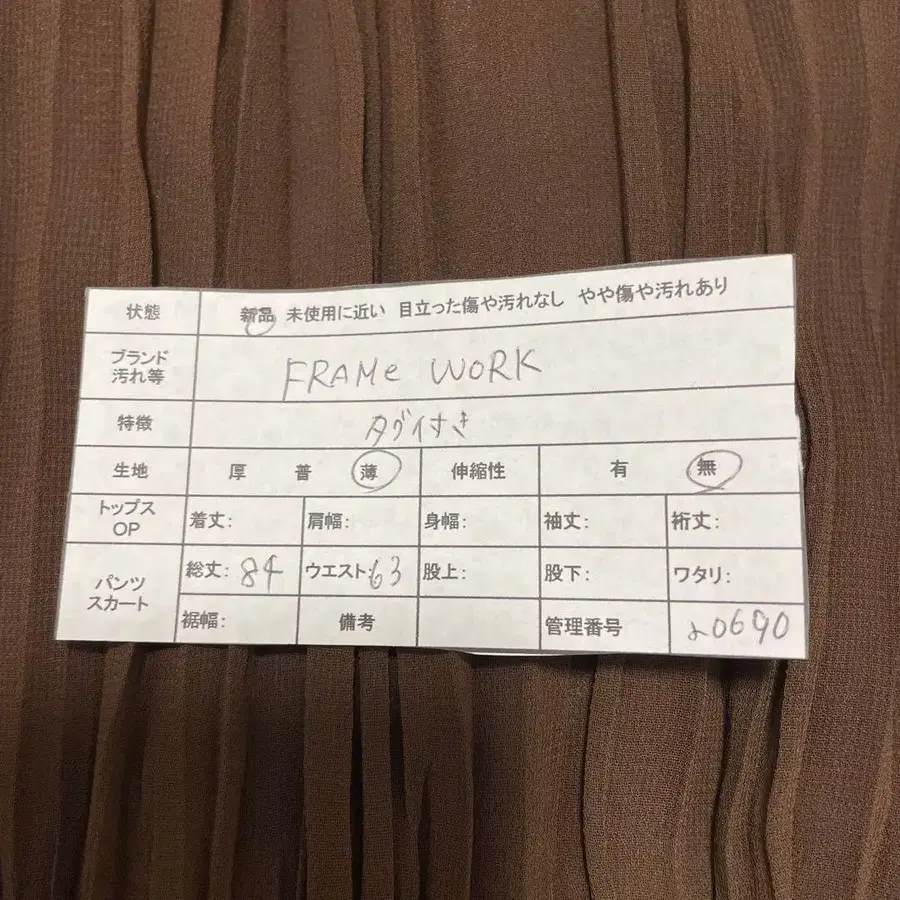 状態 新品 未使用に近い 目立った傷や汚れなし やや傷や汚れあり
ブランド
汚れ等
FRAMe WORK
特徴 タグイすき
生地 厚 普 薄 伸縮性 有 無
トップス
OP
着丈: 肩幅: 身幅: 袖丈: 裄丈:
パンツ
スカート
総丈: 84 ウエスト: 63 股上: 股下: ワタリ:
裾幅: 備考 管理番号 20690